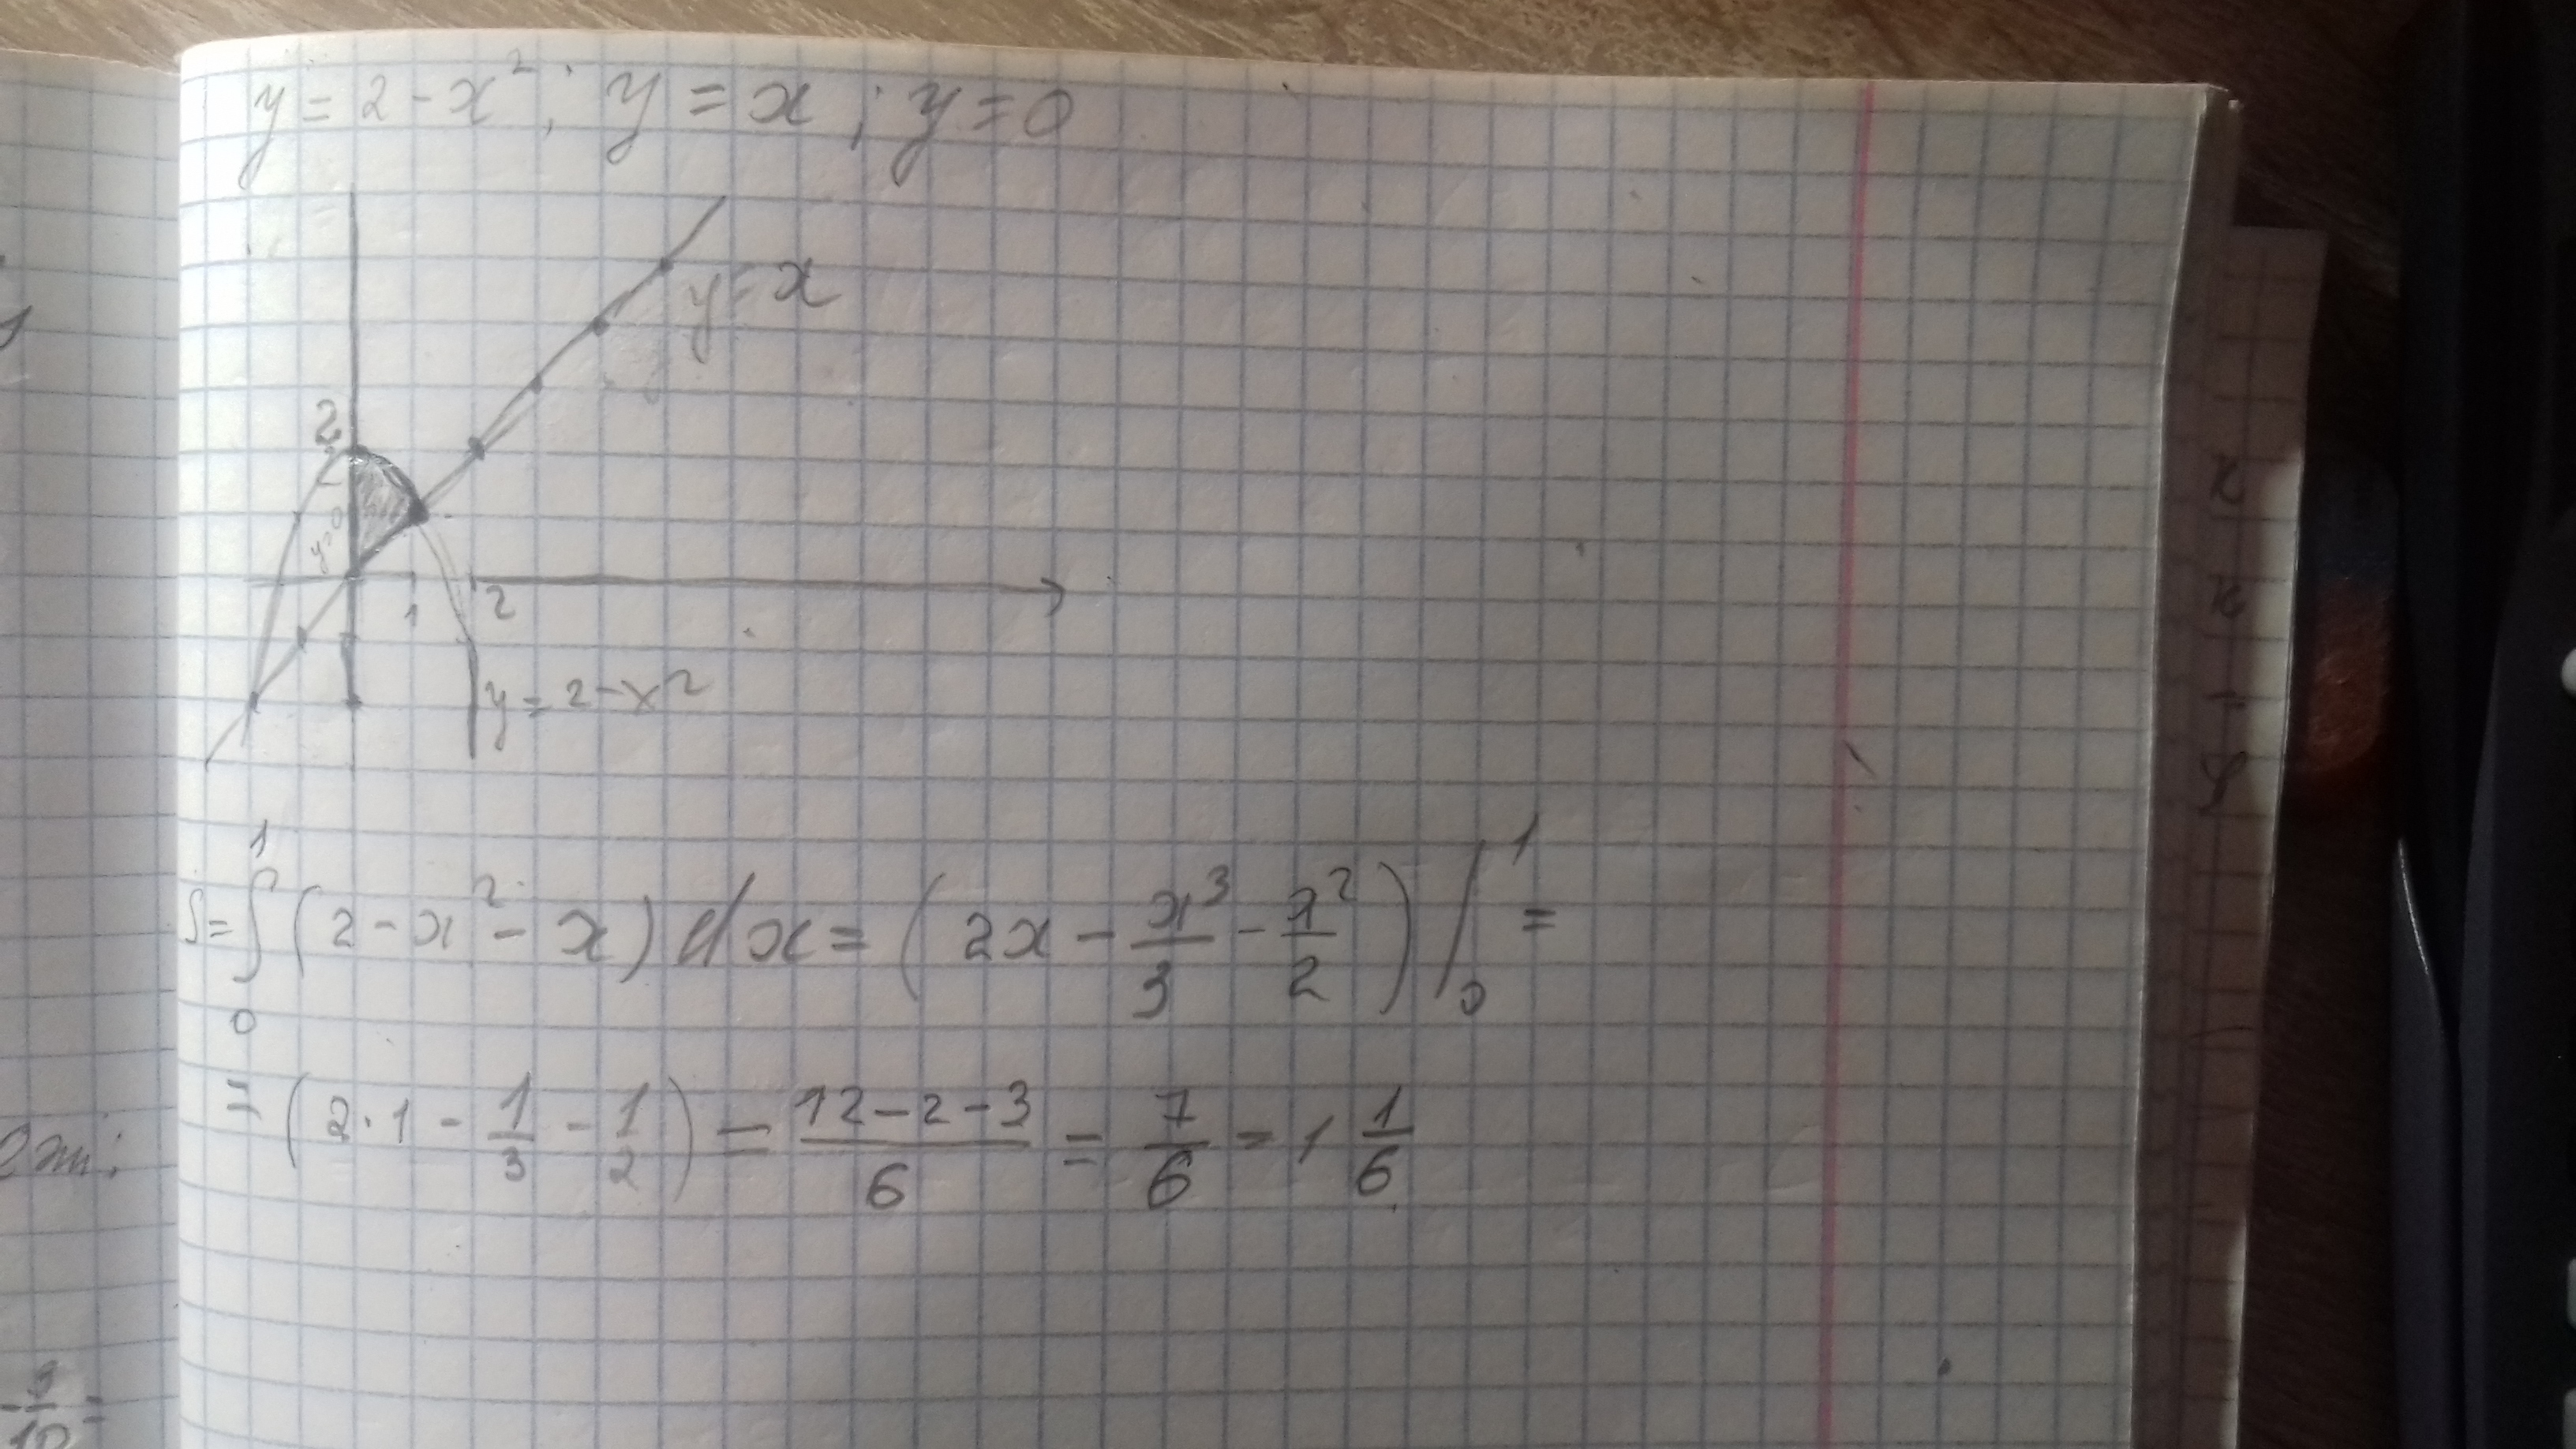 y = 2 - x²; y = x; y = 0
y = x
2
y=0
1 2
y = 2 - x²
S = ∫₀¹ (2 - x² - x) dx = (2x - x³/3 - x²/2) /₀¹ =
= (2·1 - 1/3 - 1/2) = (12-2-3)/6 = 7/6 = 1 1/6